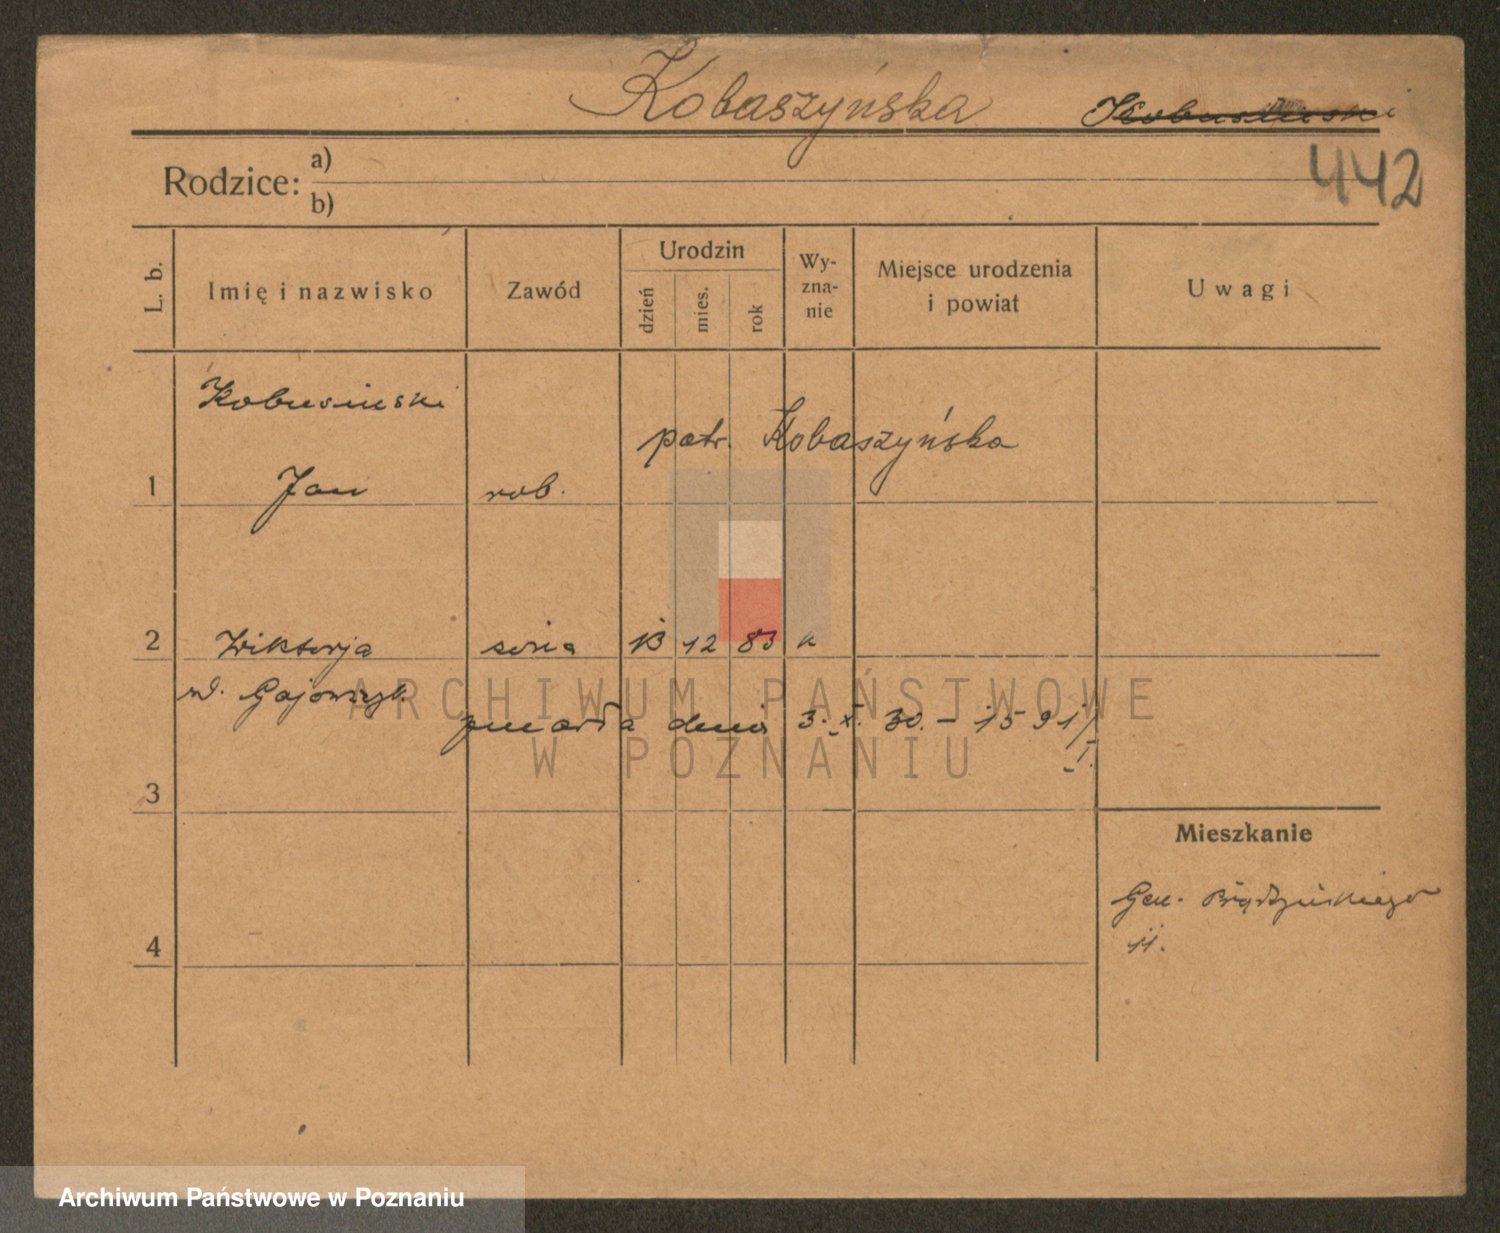 Kobaszyńska Kobusinski
442
Rodzice: a)
b)
L. b. Imię i nazwisko Zawód Urodzin dzień mies. rok Wy-zna-nie Miejsce urodzenia i powiat Uwagi
Kobusinski
patr. Kobaszyńska
1 Jan rob.
2 Wiktorja żona 13 12 83 k
ARCHIWUM PAŃSTWOWE
zmarła dnia 3. X. 30. - 1591/I.
W POZNANIU
3
Mieszkanie
Gen. Prądzyńskiego
11.
4
Archiwum Państwowe w Poznaniu